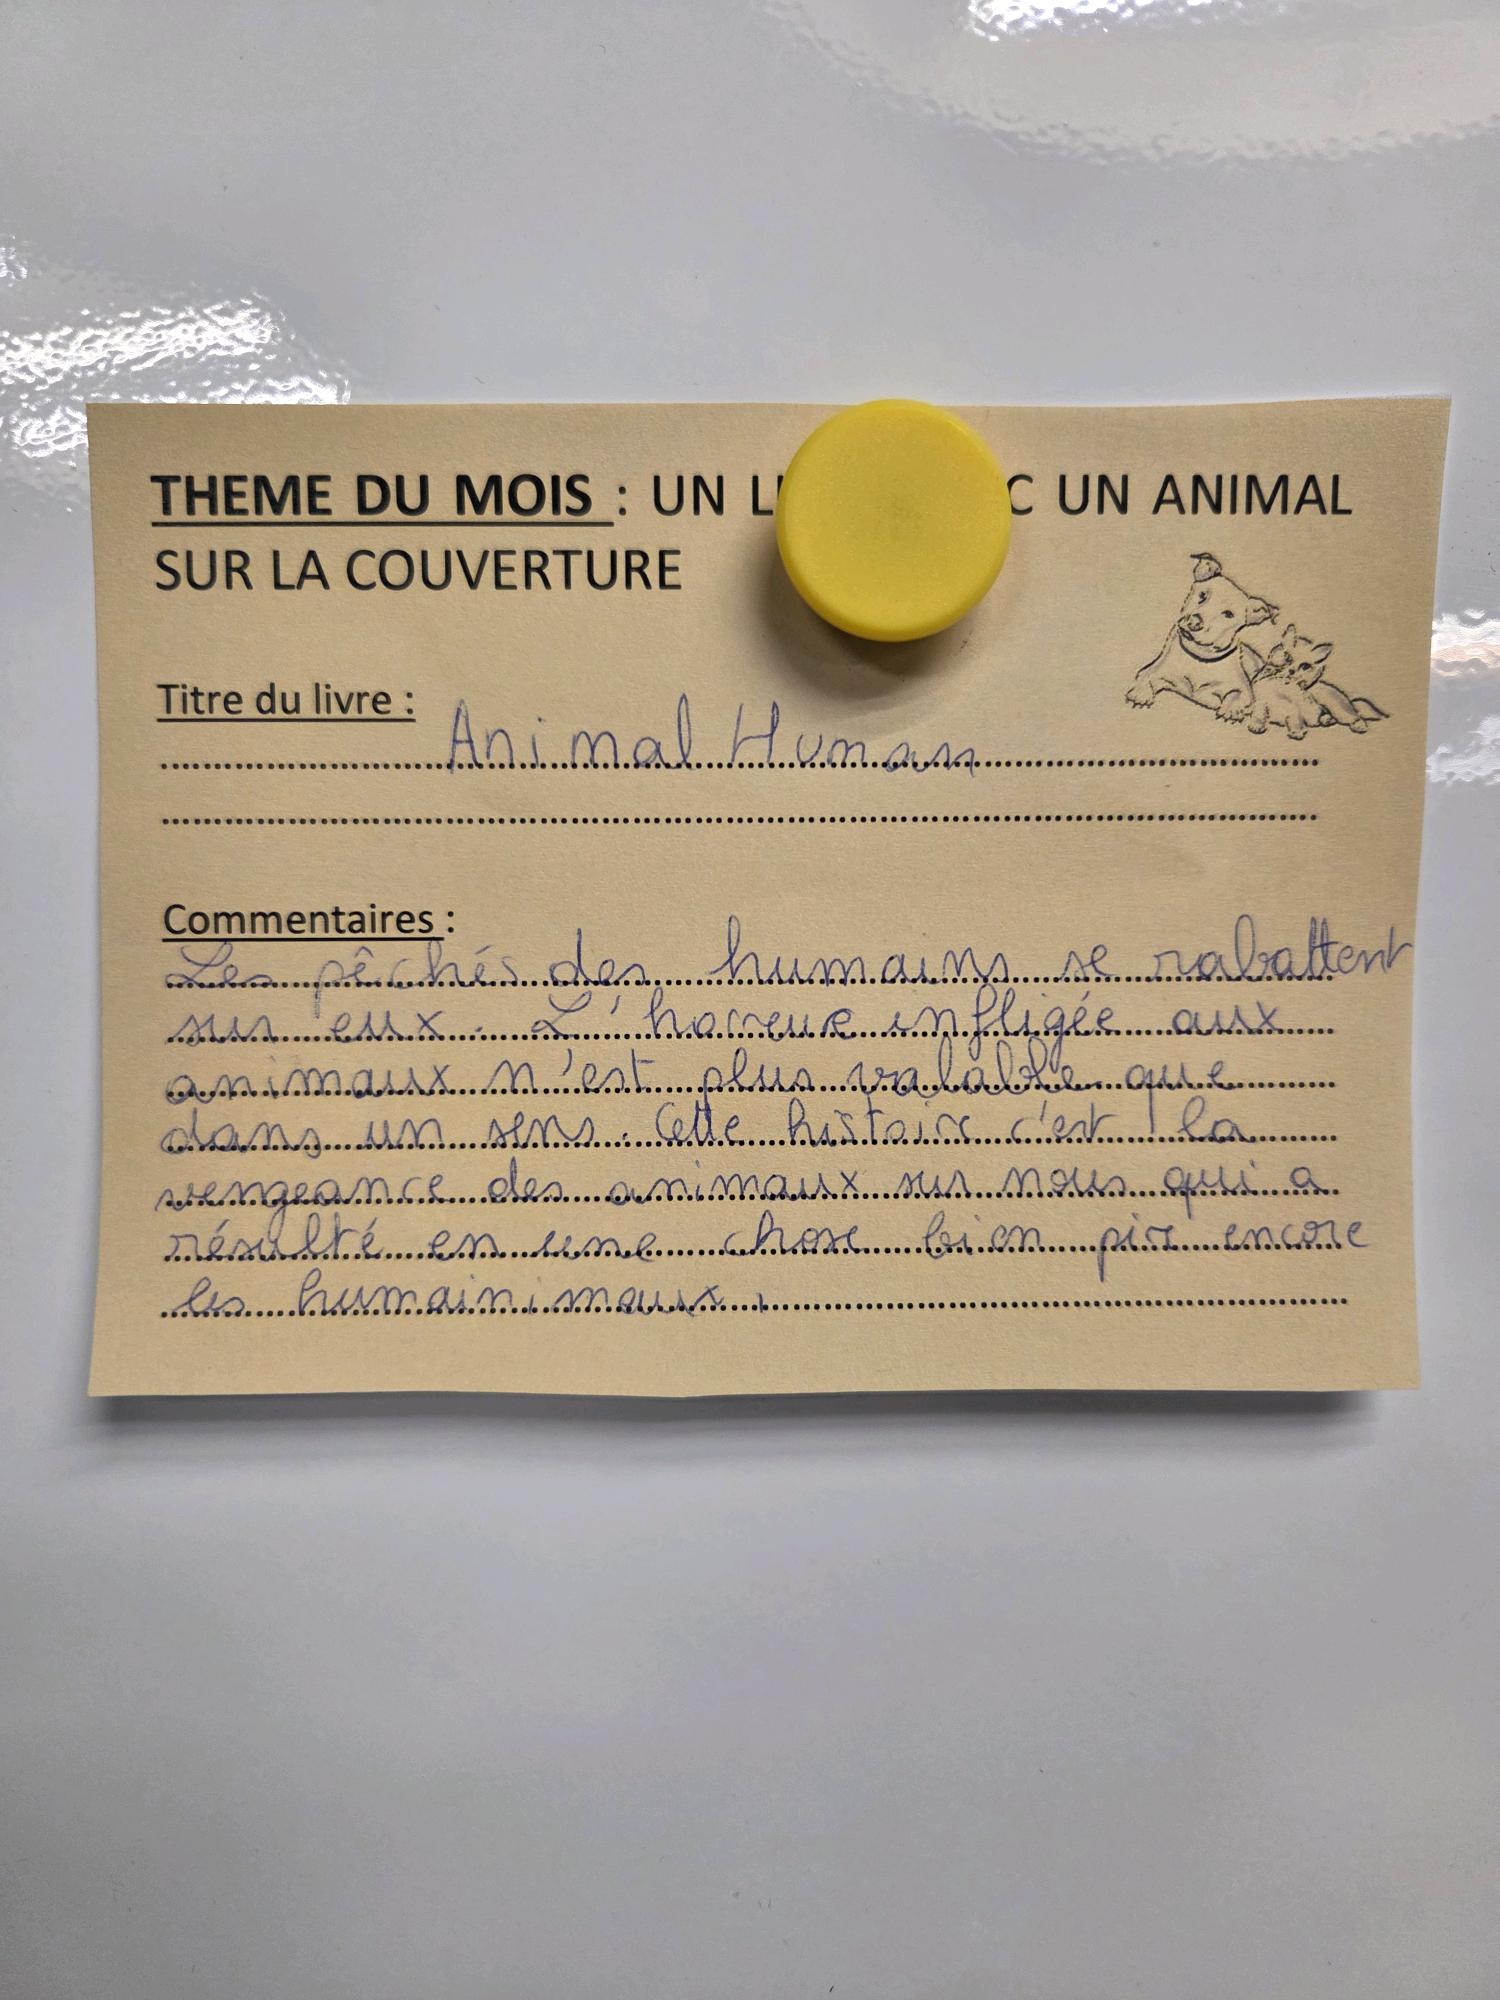 THEME DU MOIS : UN LI C UN ANIMAL
SUR LA COUVERTURE
Titre du livre :
Animal Human
Commentaires :
Les pêchés des humains se rabattent
sur eux. L'horreur infligée aux
animaux n'est plus valable que
dans un sens. Cette histoire c'est la
vengeance des animaux sur nous qui a
résulté en une chose bien pire encore
les humainimaux.